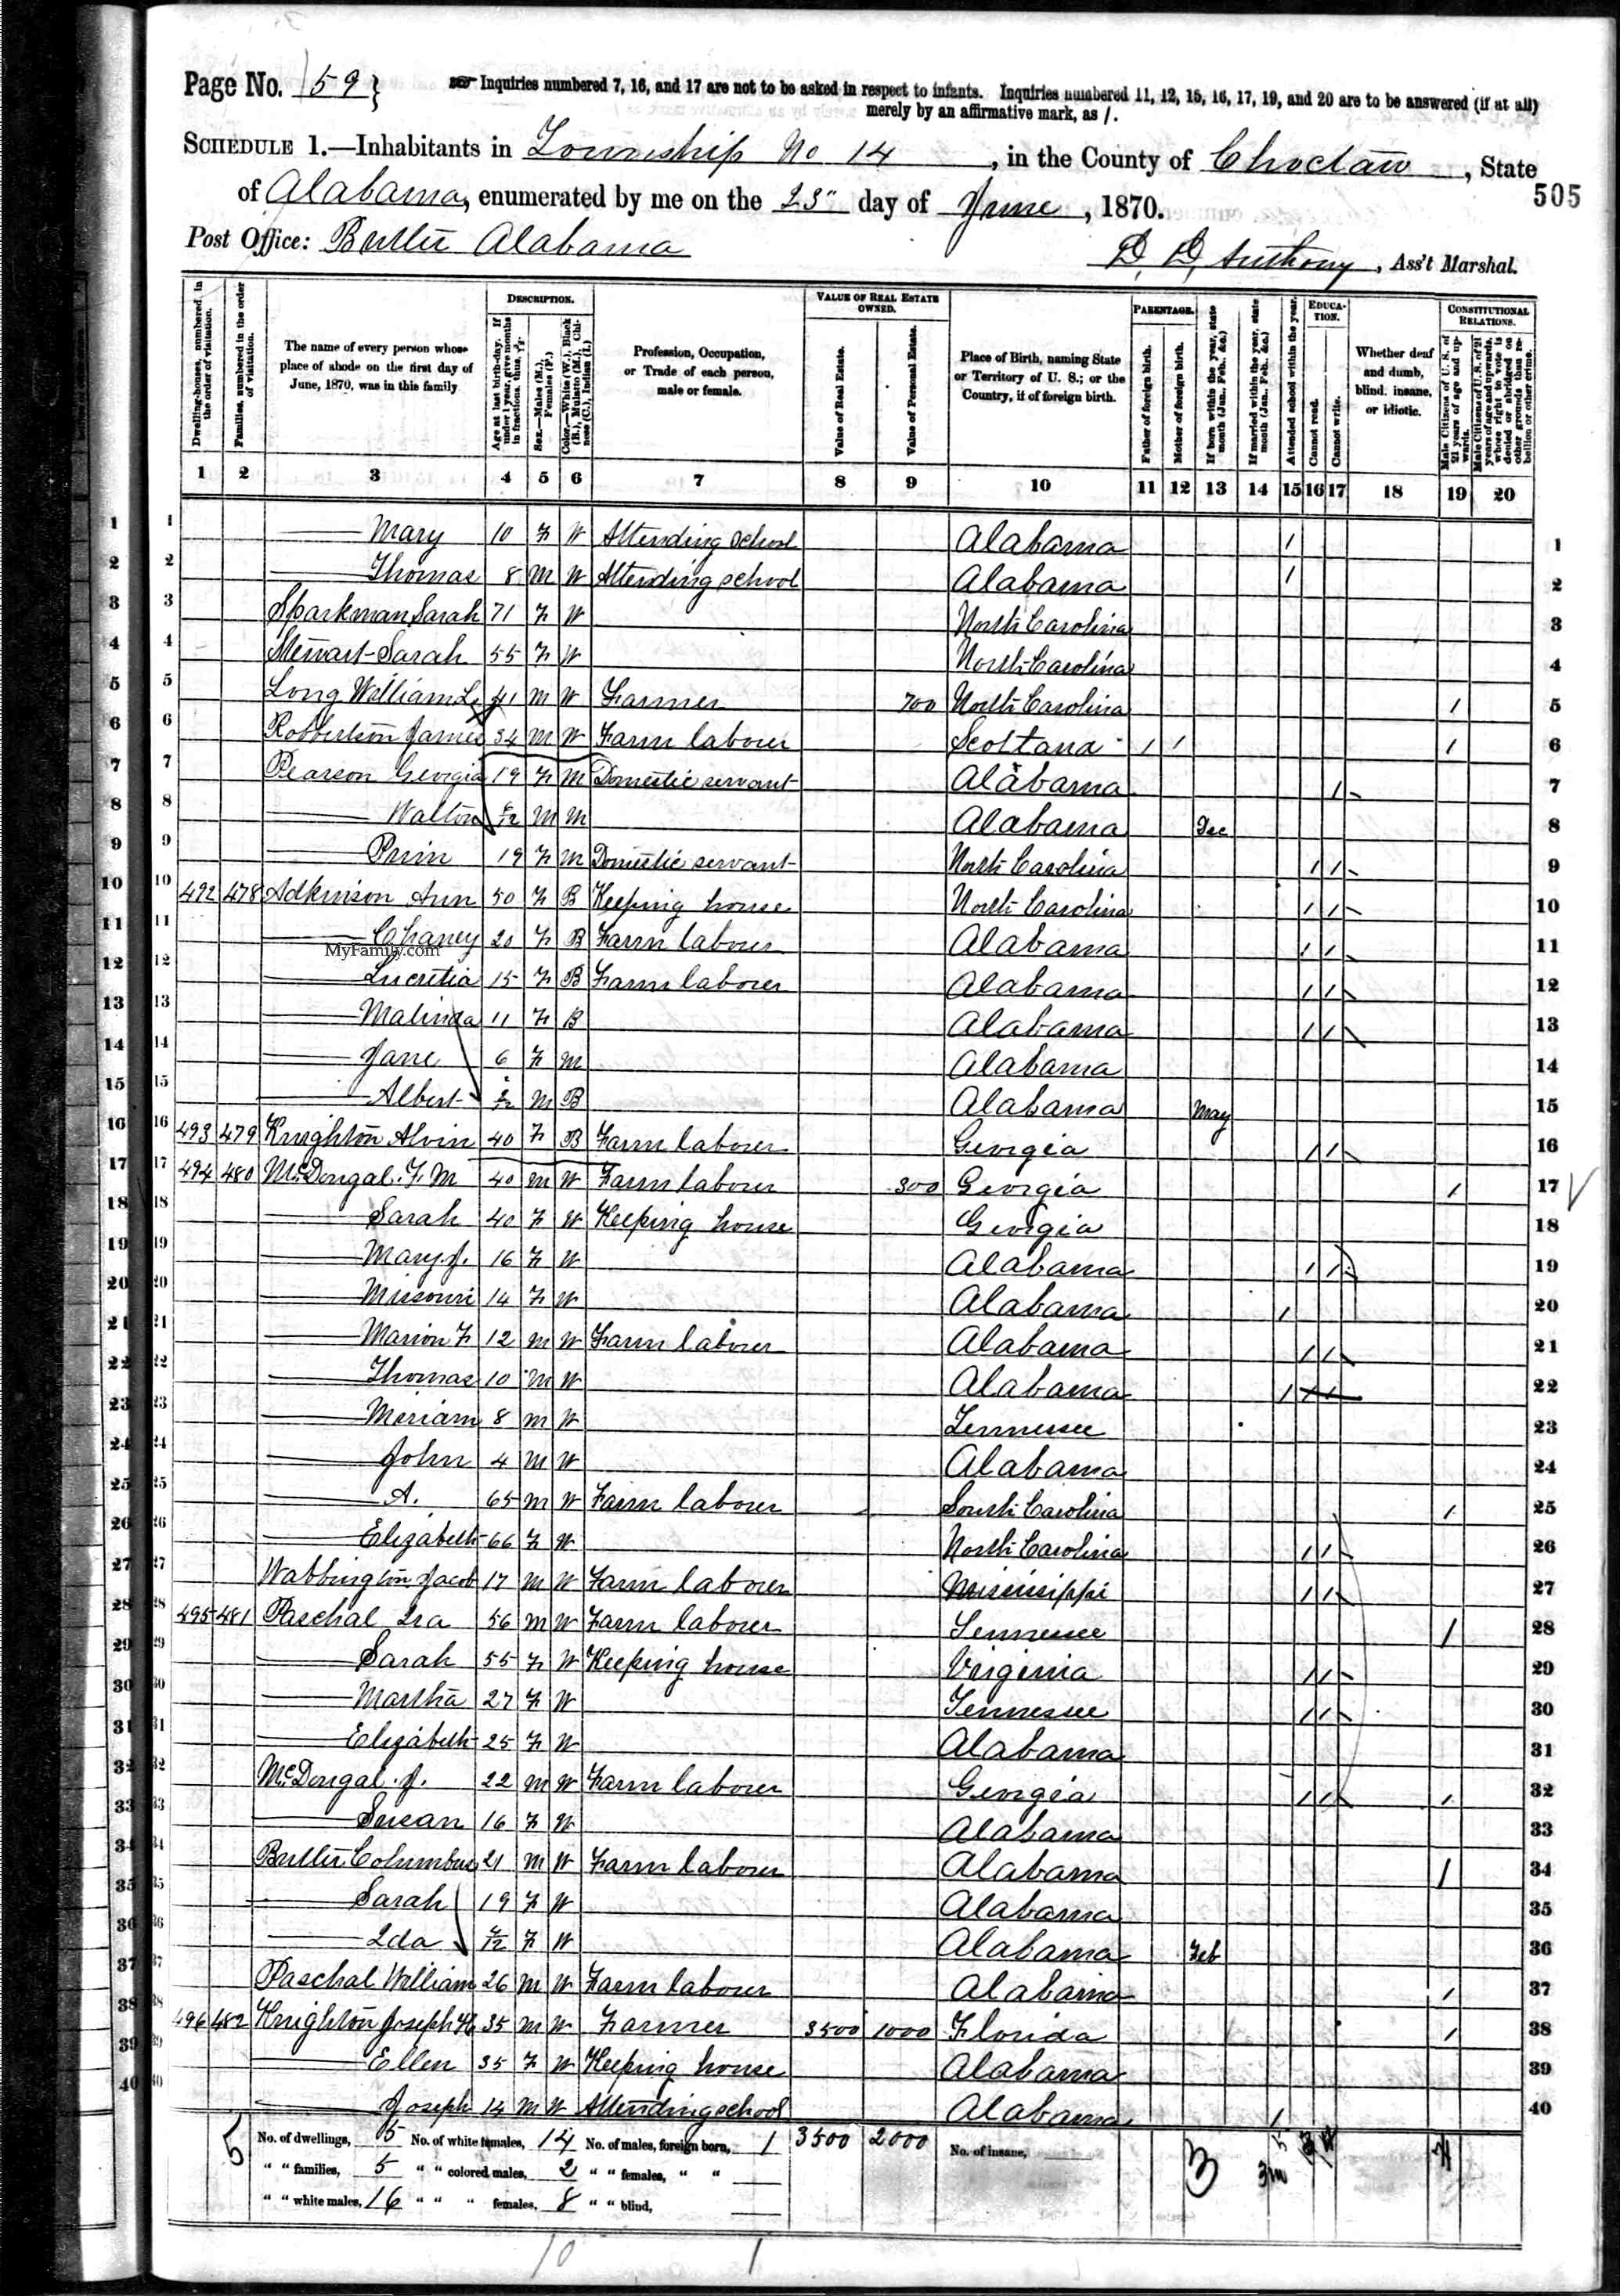 Page No. 159
Inquiries numbered 7, 16, and 17 are not to be asked in respect to infants. Inquiries numbered 11, 12, 15, 16, 17, 19, and 20 are to be answered (if at all)
merely by an affirmative mark, as /.
SCHEDULE 1.—Inhabitants in Township No 14, in the County of Choctaw, State
505
of Alabama, enumerated by me on the 23" day of June, 1870.
Post Office: Butler Alabama
D. D. Anthony, Ass't Marshal.
Dwelling-houses, numbered in the order of visitation.
Families, numbered in the order of visitation.
The name of every person whose place of abode on the first day of June, 1870, was in this family.
DESCRIPTION.
Age at last birth-day. If under 1 year, give months in fractions, thus, 3/12.
Sex.—Males (M.), Females (F.)
Color.—White (W.), Black (B.), Mulatto (M.), Chinese (C.), Indian (I.)
Profession, Occupation, or Trade of each person, male or female.
VALUE OF REAL ESTATE OWNED.
Value of Real Estate.
Value of Personal Estate.
Place of Birth, naming State or Territory of U. S.; or the Country, if of foreign birth.
PARENTAGE.
Father of foreign birth.
Mother of foreign birth.
If born within the year, state month (Jan. Feb. &c.)
If married within the year, state month (Jan. Feb. &c.)
Attended school within the year.
EDUCATION.
Cannot read.
Cannot write.
Whether deaf and dumb, blind, insane, or idiotic.
CONSTITUTIONAL RELATIONS.
Male Citizens of U. S. of 21 years of age and upwards.
Male Citizens of U. S. of 21 years of age and upwards, whose right to vote is denied or abridged on other grounds than rebellion or other crime.
1 2 3 4 5 6 7 8 9 10 11 12 13 14 15 16 17 18 19 20
1 Mary 10 F W Attending school Alabama 1 1
2 Thomas 8 M W Attending school Alabama 1 2
3 Sparkman Sarah 71 F W North Carolina 3
4 Stewart Sarah 55 F W North Carolina 4
5 Long William L 41 M W Farmer 700 North Carolina 1 5
6 Robbertson James 34 M W Farm laborer Scotland 1 1 1 6
7 Pearson Georgia 19 F M Domestic servant Alabama 1 7
8 Walton M M Alabama Dec 8
9 Prim 19 F M Domestic servant North Carolina 1 1 9
10 492 478 Adkinson Ann 50 F B Keeping house North Carolina 1 1 10
11 Chaney 20 F B Farm laborer Alabama 1 1 11
MyFamily.com
12 Lucretia 15 F B Farm laborer Alabama 1 1 12
13 Malinda 11 F B Alabama 1 1 13
14 Jane 6 F M Alabama 14
15 Albert M B Alabama May 15
16 493 479 Knighton Alvin 40 F B Farm laborer Georgia 1 1 16
17 494 480 McDongal F. M 40 M W Farm laborer 300 Georgia 1 17
18 Sarah 40 F W Keeping house Georgia 18
19 Mary J. 16 F W Alabama 1 1 19
20 Missouri 14 F W Alabama 1 20
21 Marion F 12 M W Farm laborer Alabama 1 1 21
22 Thomas 10 M W Alabama 1 1 1 22
23 Meriam 8 M W Tennessee 23
24 John 4 M W Alabama 24
25 A. 65 M W Farm laborer South Carolina 1 25
26 Elizabeth 66 F W North Carolina 1 1 26
27 Wabbington Jacob 17 M W Farm laborer Mississippi 1 1 27
28 495 481 Paschal Ira 56 M W Farm laborer Tennessee 1 28
29 Sarah 55 F W Keeping house Virginia 1 1 29
30 Martha 27 F W Tennessee 1 1 30
31 Elizabeth 25 F W Alabama 31
32 McDongal J. 22 M W Farm laborer Georgia 1 1 1 32
33 Susan 16 F W Alabama 33
34 Butler Columbus 21 M W Farm laborer Alabama 1 34
35 Sarah 19 F W Alabama 35
36 Ida 4/12 F W Alabama Feb 36
37 Paschal William 26 M W Farm laborer Alabama 1 37
38 496 482 Knighton Joseph H 35 M W Farmer 3500 1000 Florida 1 38
39 Ellen 35 F W Keeping house Alabama 39
40 Joseph 14 M W Attending school Alabama 1 40
5 No. of dwellings, 5 No. of white females, 14 No. of males, foreign born, 1 3500 2000 No. of insane,
" " families, 5 " " colored males, 2 " " females, " "
" " white males, 16 " " " females, 8 " " blind,
3